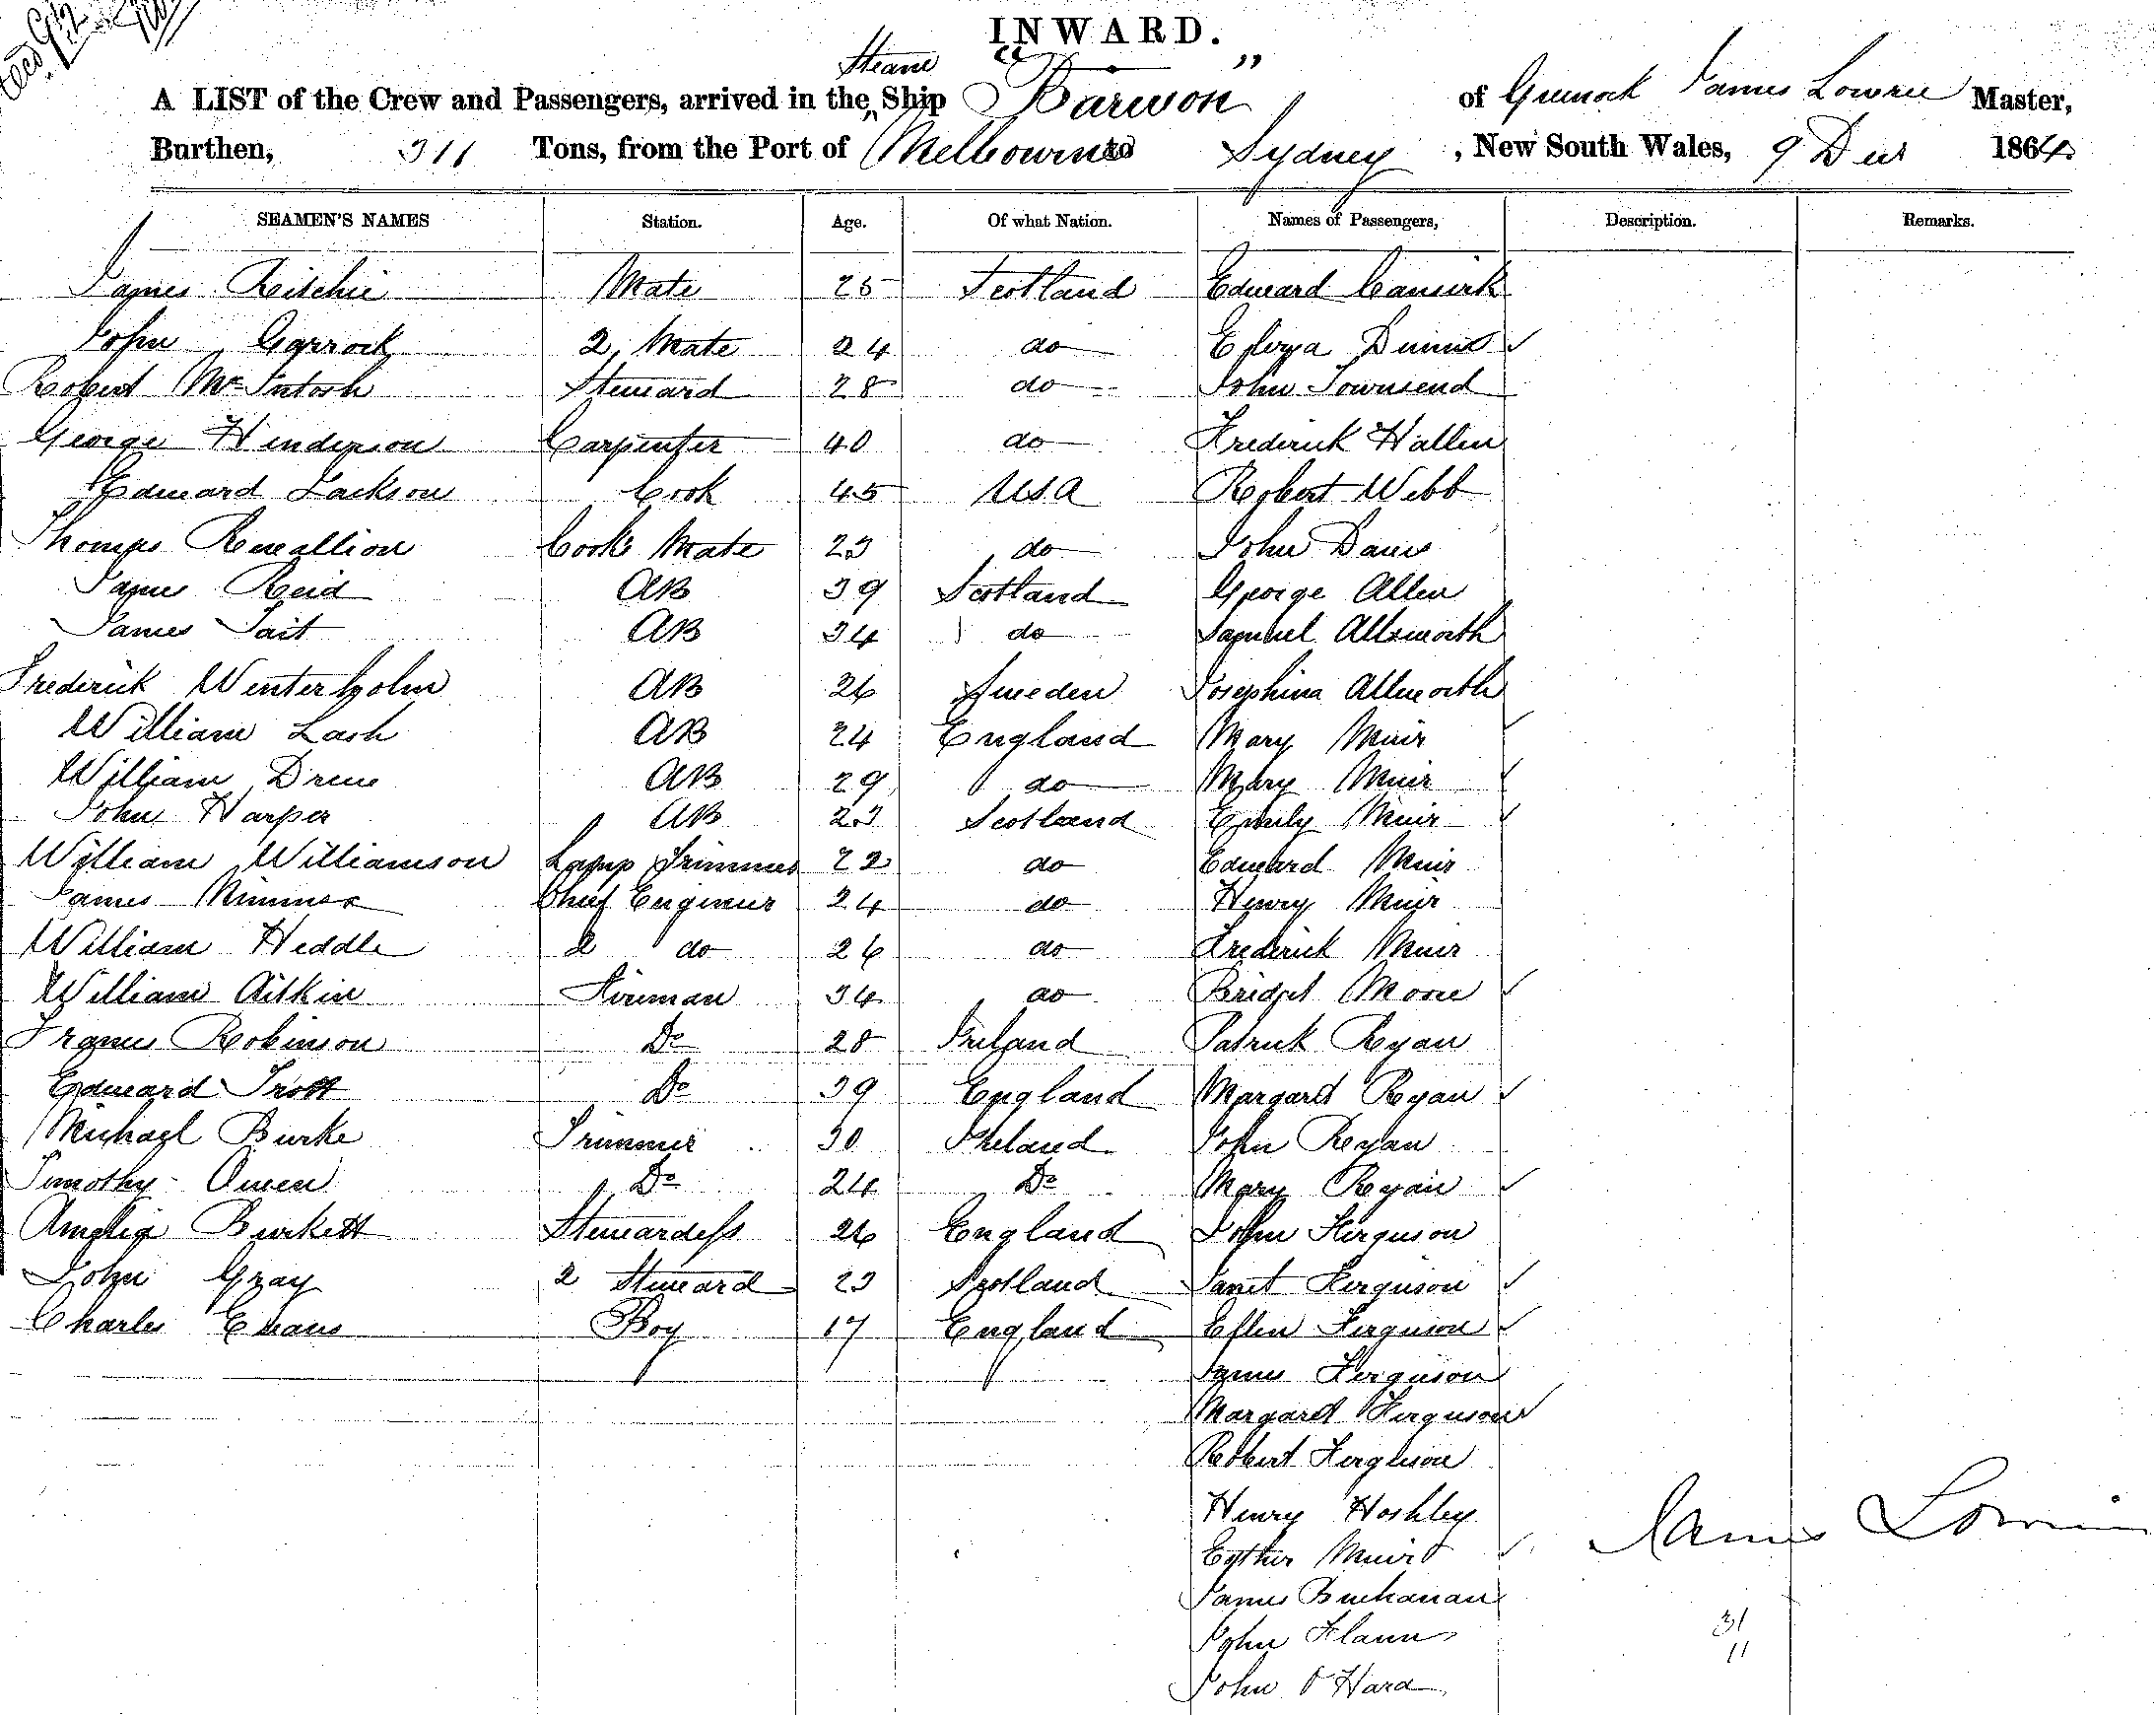 INWARD.
A LIST of the Crew and Passengers, arrived in the Steam Ship "Barwon" of Greenock James Lowrie Master,
Burthen, 311 Tons, from the Port of Melbourne to Sydney, New South Wales, 9 Dec 1864
SEAMEN'S NAMES Station. Age. Of what Nation. Names of Passengers, Description. Remarks.
James Ritchie Mate 25 Scotland Edward
John Garrock 2 Mate 24 do Dennis
Robert McIntosh Steward 28 do John Townsend
George Henderson Carpenter 40 do Frederick Hallen
Edward Jackson Cook 45 USA Robert Webb
Thomas Cooks Mate 23 do John Davis
James Reid AB 39 Scotland George Allen
James Tait AB 34 do Samuel Allsworth
Frederick Winterholm AB 26 Sweden Josephina Allworth
William Lash AB 24 England Mary Muir
William Drew AB 29 do Mary Muir
John Harper AB 23 Scotland Emily Muir
William Williamson Lamp Trimmer 22 do Edward Muir
James Mimmer Chief Engineer 24 do Henry Muir
William Heddle 2 do 26 do Frederick Muir
William Aitkin Fireman 34 do Bridget Moore
Francis Robinson Do 28 Ireland Patrick Ryan
Edward Trott Do 39 England Margaret Ryan
Michael Burke Trimmer 30 Ireland John Ryan
Timothy Owen Do 24 Do Mary Ryan
Amelia Burkett Stewardess 26 England John Ferguson
John Gray 2 Steward 23 Scotland Janet Ferguson
Charles Evans Boy 17 England Ellen Ferguson
James Ferguson
Margaret Ferguson
Robert Ferguson
Henry Hoshley
Esther Muir James Lowrie
James Buchanan
John Flann 31
11
John O'Hara